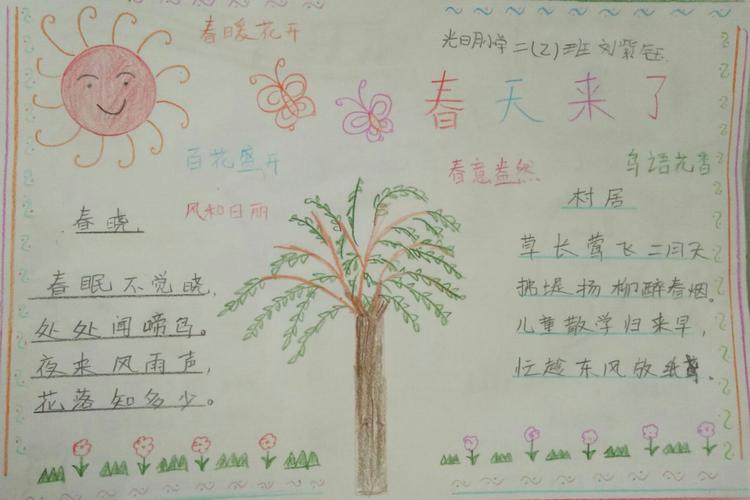 春暖花开
光明小学二(2)班刘紫钰
春天来了
百花盛开
春意盎然
鸟语花香
风和日丽
春晓
春眠不觉晓,
处处闻啼鸟。
夜来风雨声,
花落知多少。
村居
草长莺飞二月天
拂堤扬柳醉春烟。
儿童散学归来早,
忙趁东风放纸鸢.